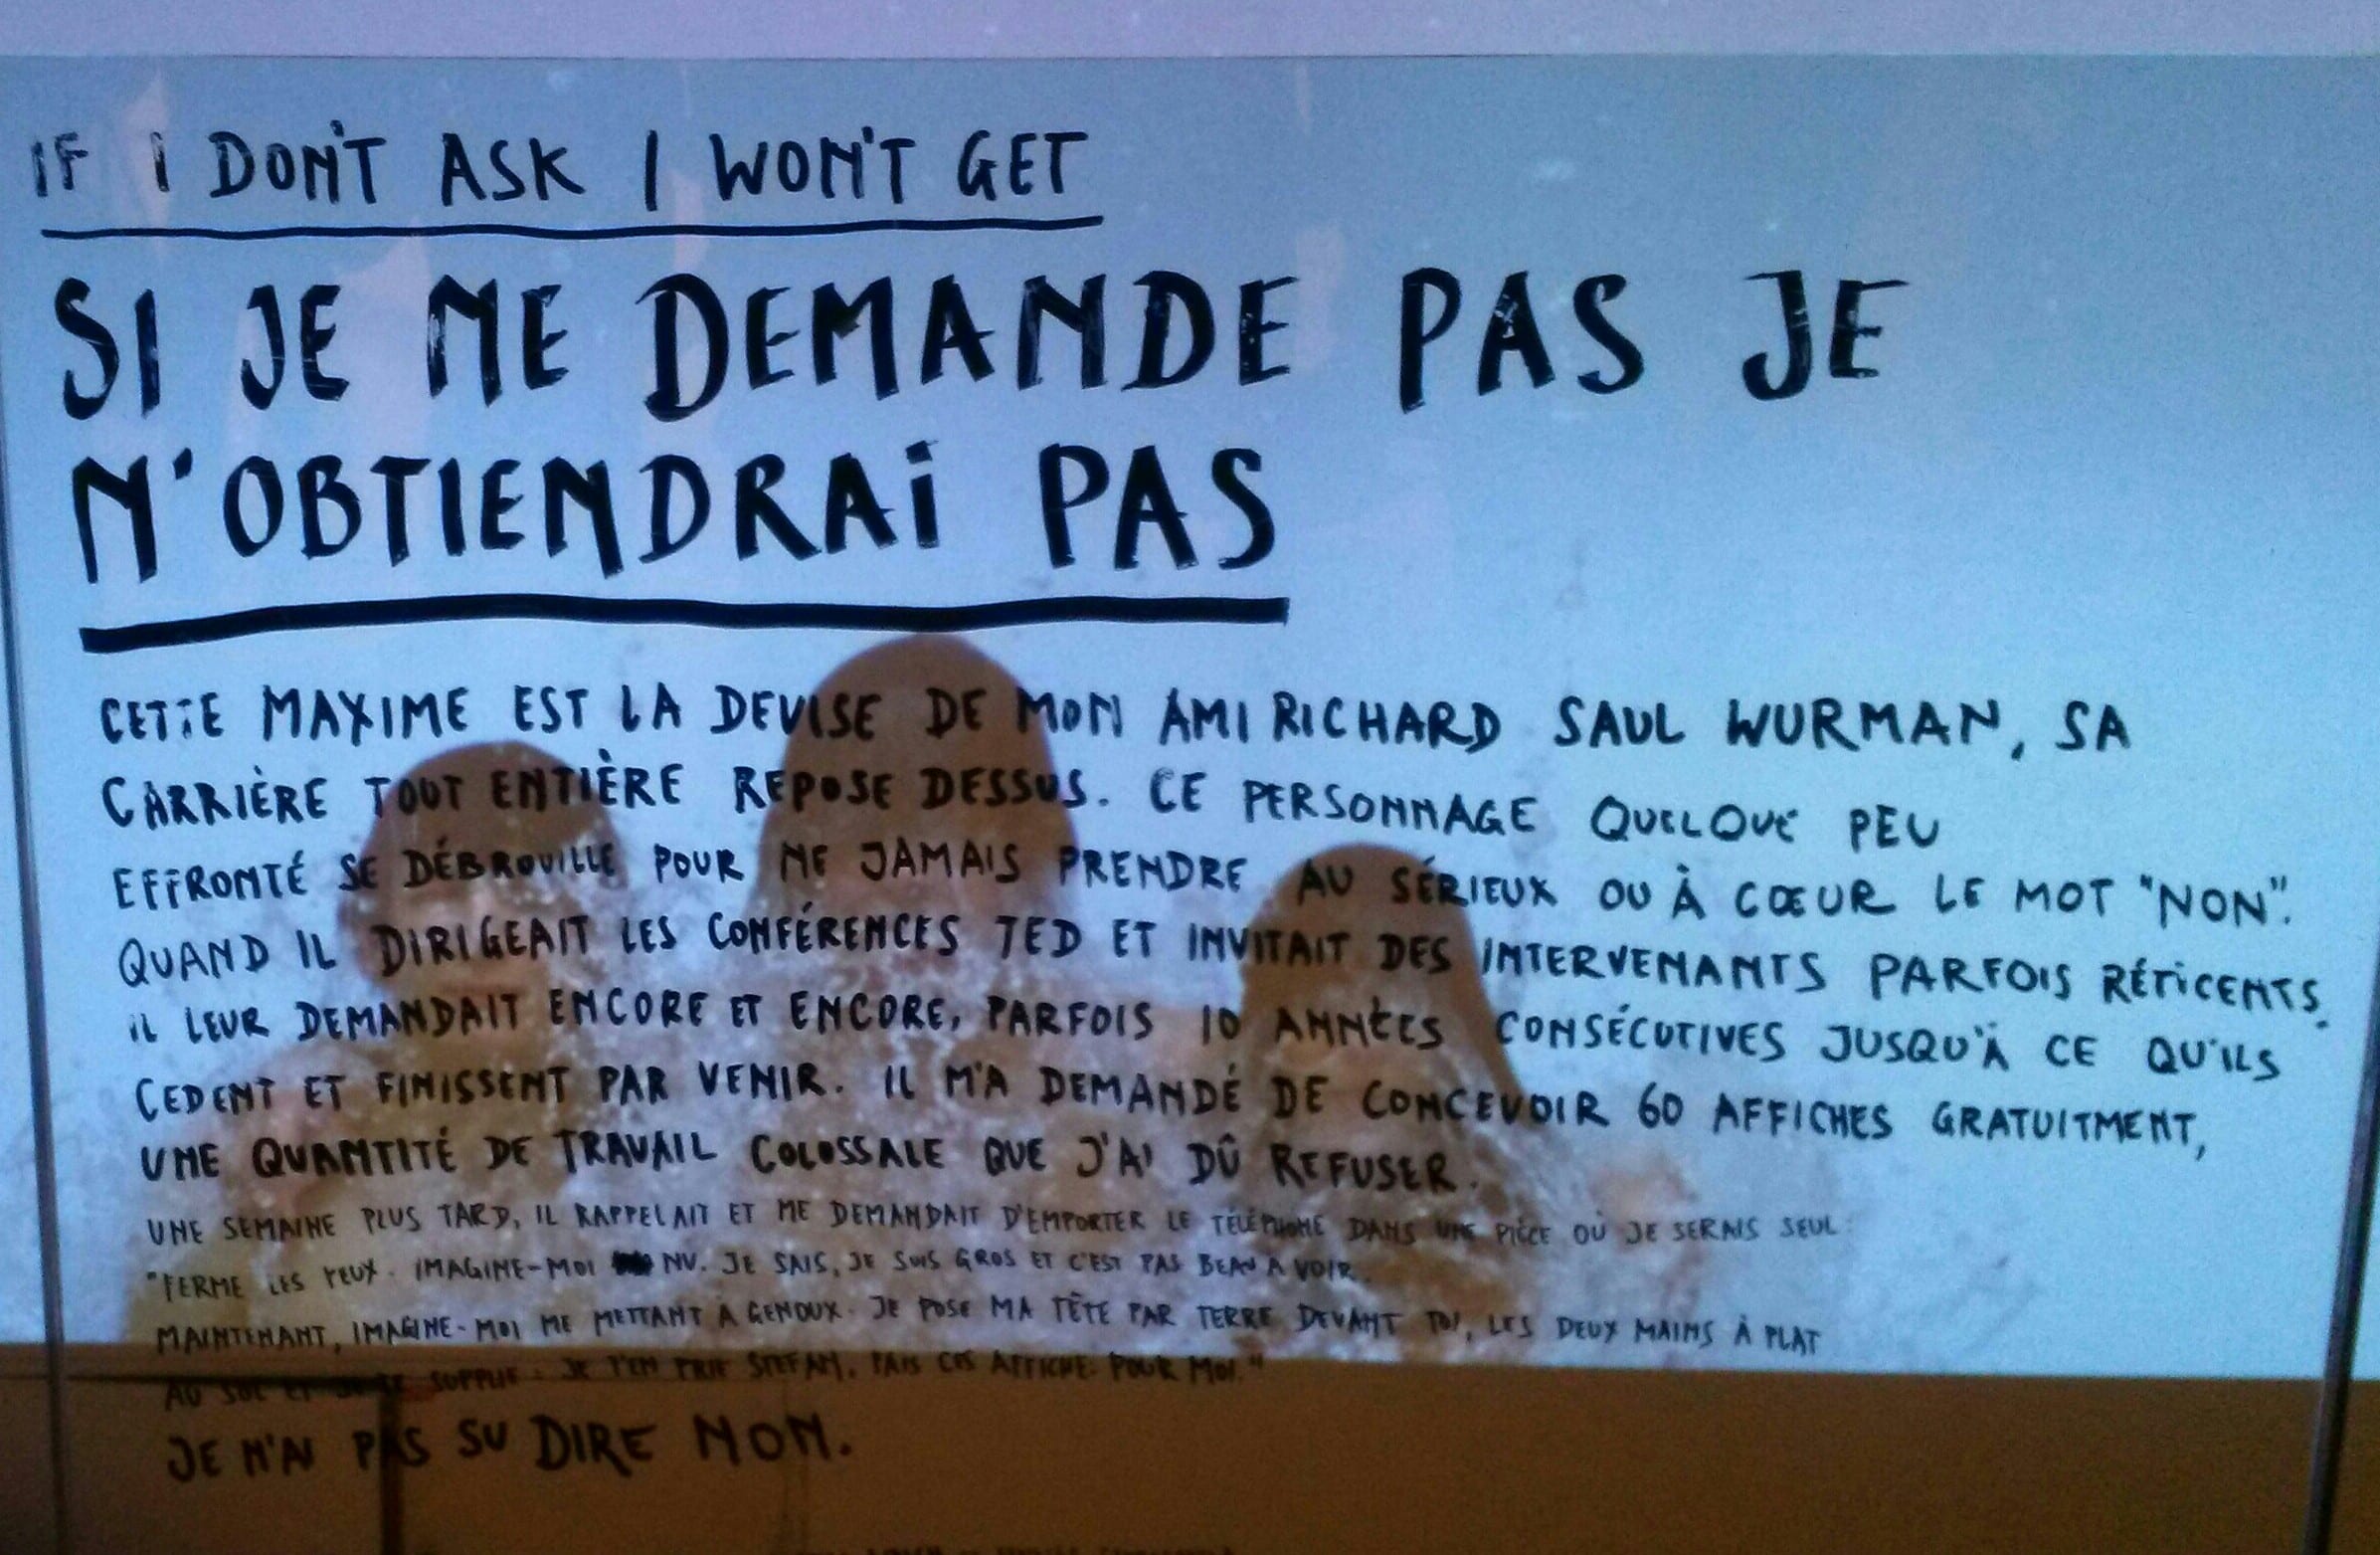 IF I DON'T ASK I WON'T GET
SI JE NE DEMANDE PAS JE
N'OBTIENDRAI PAS
CETTE MAXIME EST LA DEVISE DE MON AMI RICHARD SAUL WURMAN, SA
CARRIÈRE TOUT ENTIÈRE REPOSE DESSUS. CE PERSONNAGE QUELQUE PEU
EFFRONTÉ SE DÉBROUILLE POUR NE JAMAIS PRENDRE AU SÉRIEUX OU À CŒUR LE MOT "NON".
QUAND IL DIRIGEAIT LES CONFÉRENCES TED ET INVITAIT DES INTERVENANTS PARFOIS RÉTICENTS,
IL LEUR DEMANDAIT ENCORE ET ENCORE, PARFOIS 10 ANNÉES CONSÉCUTIVES JUSQU'À CE QU'ILS
CEDENT ET FINISSENT PAR VENIR. IL M'A DEMANDÉ DE CONCEVOIR 60 AFFICHES GRATUITMENT,
UNE QUANTITÉ DE TRAVAIL COLOSSALE QUE J'AI DÛ REFUSER.
UNE SEMAINE PLUS TARD, IL RAPPELAIT ET ME DEMANDAIT D'EMPORTER LE TÉLÉPHONE DANS UNE PIÈCE OÙ JE SERAIS SEUL:
"FERME LES YEUX. IMAGINE-MOI NU. JE SAIS, JE SUIS GROS ET C'EST PAS BEAU A VOIR.
MAINTENANT, IMAGINE-MOI ME METTANT À GENOUX. JE POSE MA TÊTE PAR TERRE DEVANT TOI, LES DEUX MAINS À PLAT
AU SOL ET JE TE SUPPLIE: JE T'EN PRIE STEFAN, FAIS CES AFFICHE POUR MOI."
JE N'AI PAS SU DIRE NON.